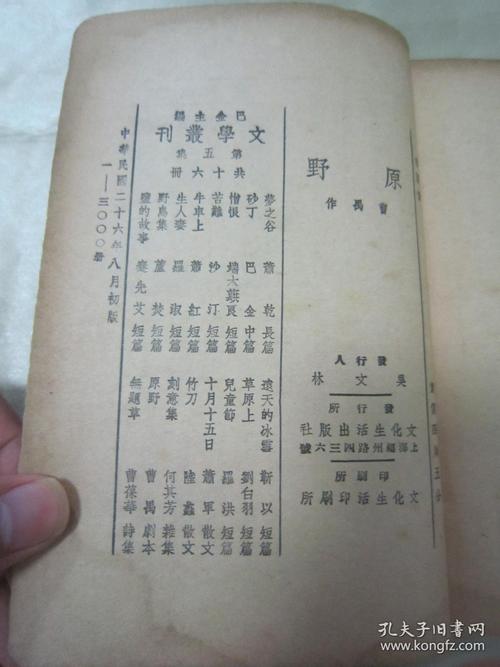 原野
曹禺作
發行人
吳文林
發行所
文化生活出版社
上海福州路四三六號
印刷所
文化生活印刷所
巴金主編
文學叢刊
第五集
共十六冊
夢之谷 蕭乾長篇
砂丁 巴金中篇
憎恨 端木蕻良短篇
苦難 沙汀短篇
牛車上 蕭紅短篇
生人妻 羅淑短篇
野鳥集 蘆焚短篇
鹽的故事 蹇先艾短篇
遠天的冰雪 靳以短篇
草原上 劉白羽短篇
兒童節 羅洪短篇
十月十五日 蕭軍散文
竹刀 陸蠡散文
刻意集 何其芳雜集
原野 曹禺劇本
無題草 曹葆華詩集
中華民國二十六年八月初版
一——三〇〇〇冊
五分
孔夫子旧书网
www.kongfz.com